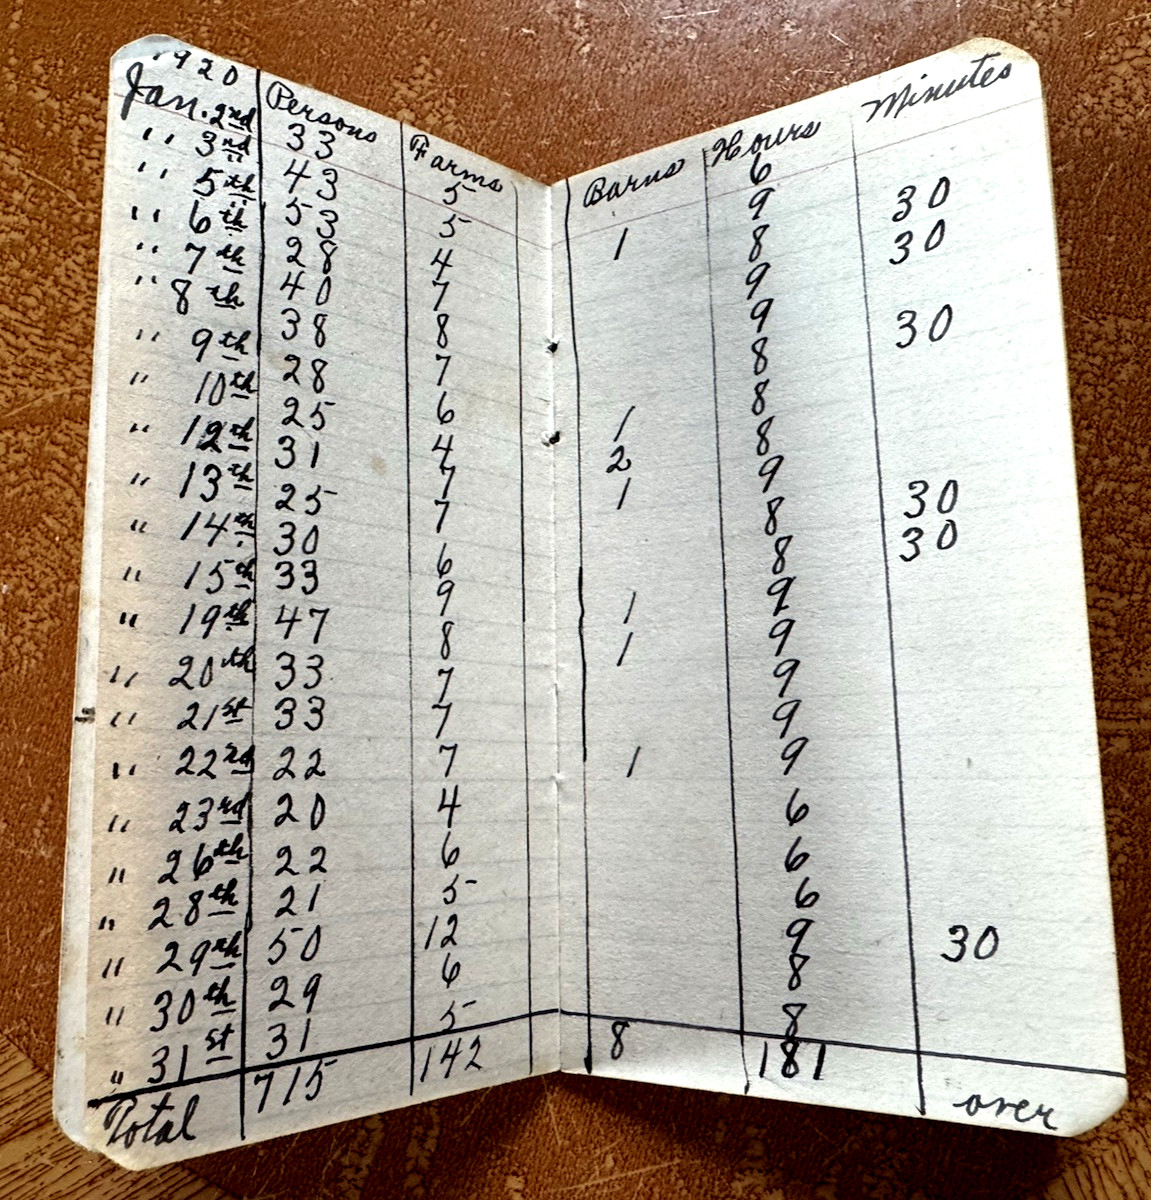 1920 Persons Farms Barns Hours Minutes
Jan. 2nd 33 5 6
" 3nd 43 5 9 30
" 5th 53 4 1 8 30
" 6th 28 7 9
" 7th 40 8 9 30
" 8th 38 7 8
" 9th 28 6 1 8
" 10th 25 4 2 8
" 12th 31 7 1 9 30
" 13th 25 7 8 30
" 14th 30 6 8
" 15th 33 9 1 9
" 19th 47 8 1 9
" 20th 33 7 9
" 21st 33 7 9
" 22nd 22 7 1 9
" 23rd 20 4 6
" 26th 22 6 6
" 28th 21 5 6
" 29th 50 12 9 30
" 30th 29 6 8
" 31st 31 5 8
Total 715 142 8 181 over